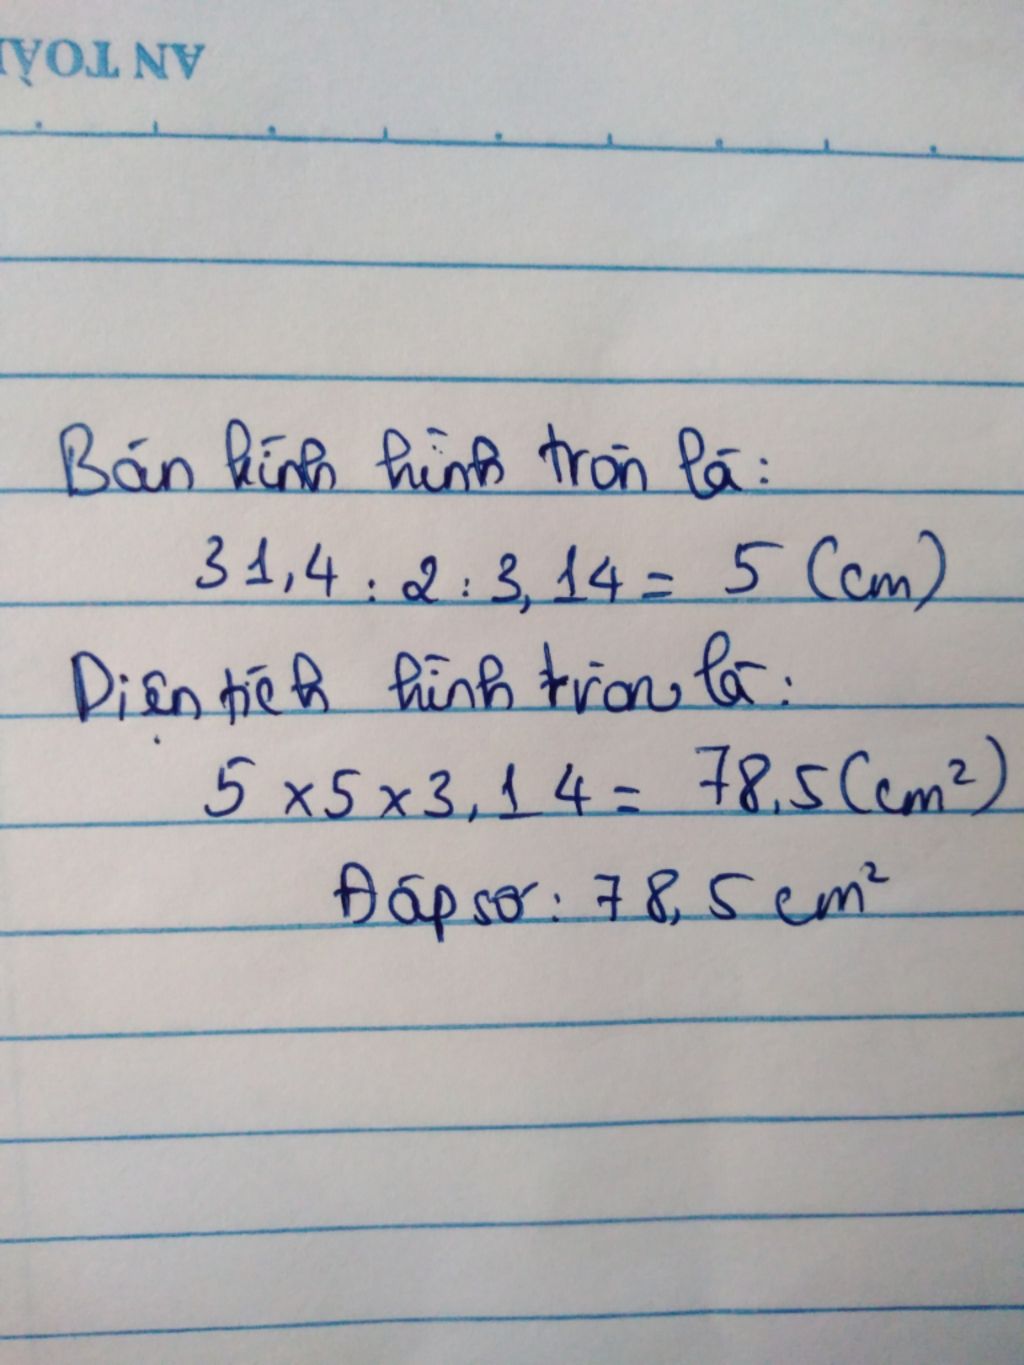 AN TOÀ
Bán kính hình tròn là:
31,4 : 2 : 3,14 = 5 (cm)
Diện tích hình tròn là:
5 x 5 x 3,14 = 78,5 (cm²)
Đáp số: 78,5 cm²